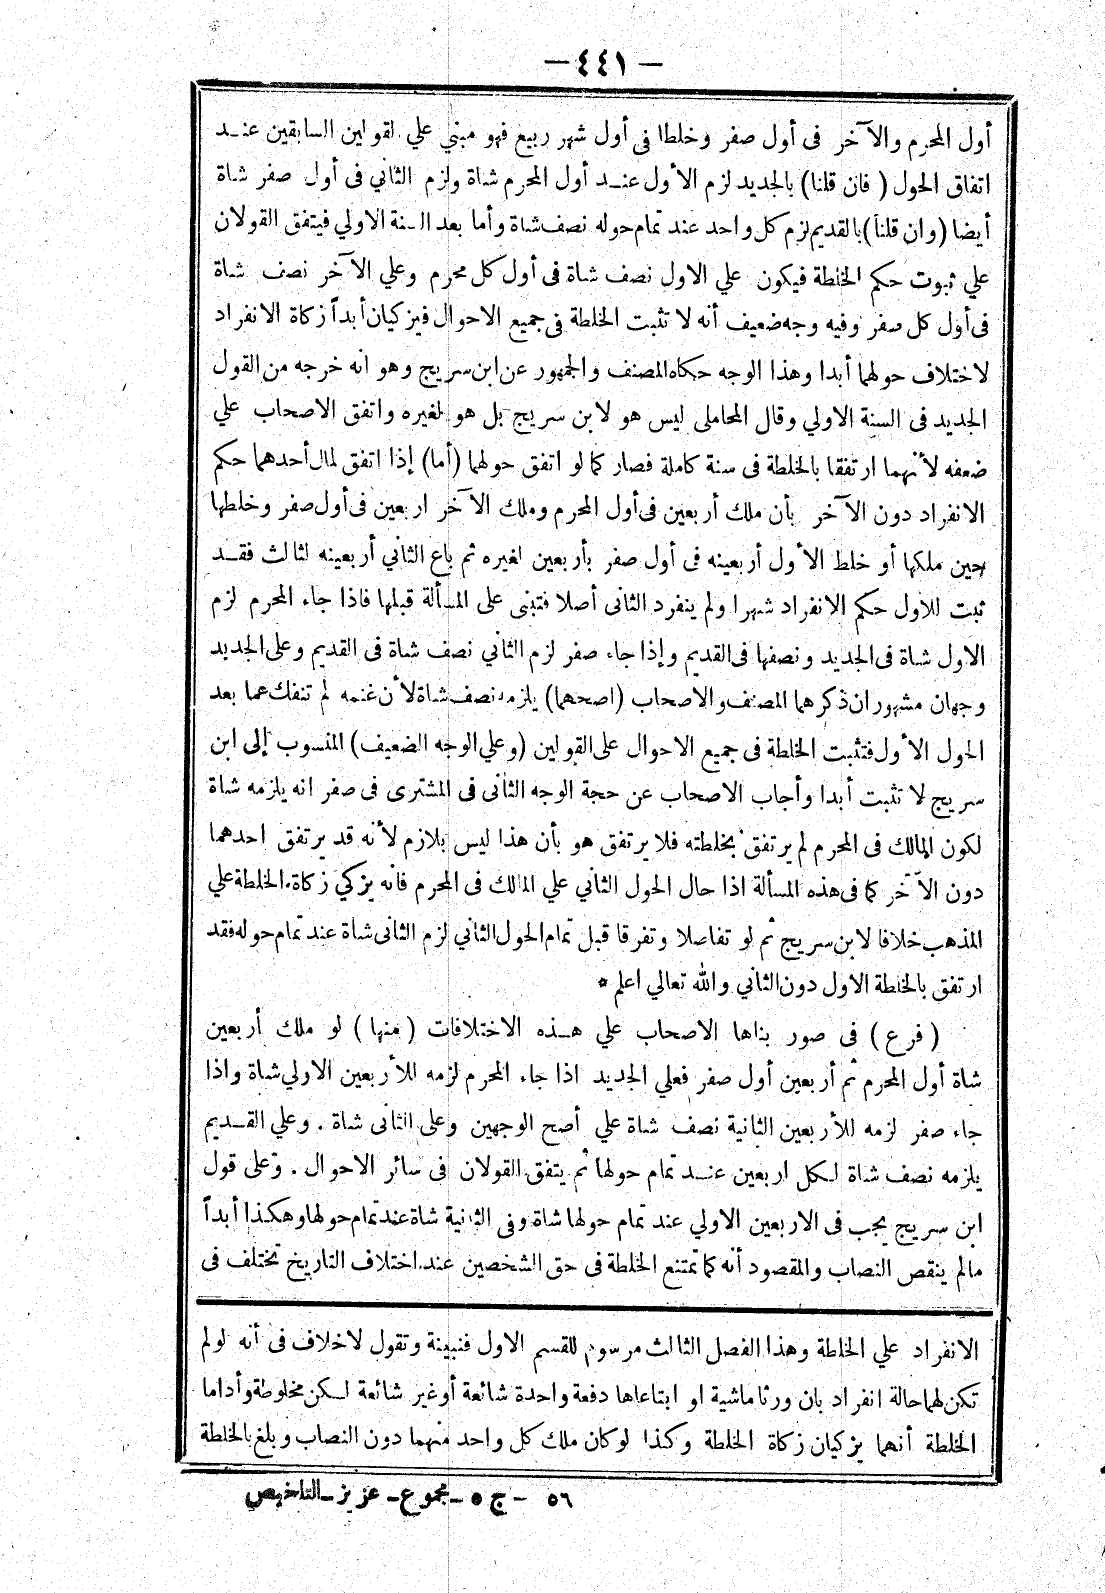 — ٤٤١ —
أول المحرم والآخر فى أول صفر وخلطا فى أول شهر ربيع فهو مبني علي القولين السابقين عنـد
اتفاق الحول ( فان قلنا) بالجديد لزم الأول عنـد أول المحرم شاة ولزم الثاني فى أول صفر شاة
أيضا (وان قلنا) بالقديم لزم كل واحد عند تمام حوله نصف شاة وأما بعد السنة الاولي فيتفق القولان
علي ثبوت حكم الخلطة فيكون علي الاول نصف شاة فى أول كل محرم وعلي الآخر نصف شاة
فى أول كل صفر وفيه وجه ضعيف أنه لا تثبت الخلطة فى جميع الاحوال فيزكيان أبداً زكاة الانفراد
لاختلاف حولهما أبدا وهذا الوجه حكاه المصنف والجمهور عن ابن سريج وهو انه خرجه من القول
الجديد فى السنة الاولي وقال المحاملى ليس هو لابن سريج بل هو لغيره واتفق الاصحاب علي
ضعفه لأنهما ارتفقا بالخلطة فى سنة كاملة فصار كما لو اتفق حولهما (أما) إذا اتفق لمال أحدهما حكم
الانفراد دون الآخر بأن ملك أربعين فى أول المحرم وملك الآخر اربعين فى أول صفر وخلطها
حين ملكها أو خلط الأول أربعينه فى أول صفر بأربعين لغيره ثم باع الثاني أربعينه لثالث فقـد
ثبت للاول حكم الانفراد شهرا ولم ينفرد الثانى أصلا فتبنى على المسألة قبلها فاذا جاء المحرم لزم
الاول شاة فى الجديد ونصفها فى القديم وإذا جاء صفر لزم الثاني نصف شاة فى القديم وعلى الجديد
وجهان مشهوران ذكرهما المصنف والاصحاب (اصحهما) يلزمه نصف شاة لأن غنمه لم تنفك عما بعد
الحول الأول فتثبت الخلطة فى جميع الاحوال على القولين (وعلي الوجه الضعيف) المنسوب إلى ابن
سريج لا تثبت أبدا وأجاب الاصحاب عن حجة الوجه الثانى فى المشترى فى صفر انه يلزمه شاة
لكون المالك فى المحرم لم يرتفق بخلطته فلا يرتفق هو بأن هذا ليس بلازم لأنه قد يرتفق احدهما
دون الآخر كما فى هذه المسألة اذا حال الحول الثاني علي المالك فى المحرم فانه يزكي زكاة الخلطة علي
المذهب خلافا لابن سريج ثم لو تفاصلا وتفرقا قبل تمام الحول الثاني لزم الثانى شاة عند تمام حوله فقد
ارتفق بالخلطة الاول دون الثاني والله تعالي اعلم *
( فرع ) فى صور بناها الاصحاب علي هـذه الاختلافات ( منها ) لو ملك أربعين
شاة أول المحرم ثم أربعين أول صفر فعلي الجديد اذا جاء المحرم لزمه للأربعين الاولي شاة واذا
جاء صفر لزمه للأربعين الثانية نصف شاة علي أصح الوجهين وعلى الثانى شاة . وعلي القـديم
يلزمه نصف شاة لـكل اربعين عنـد تمام حولها ثم يتفق القولان فى سائر الاحوال . وعلى قول
ابن سريج يجب فى الاربعين الاولي عند تمام حولها شاة وفى الثانية شاة عند تمام حولها وهكذا أبداً
مالم ينقص النصاب والمقصود أنه كما تمتنع الخلطة فى حق الشخصين عند اختلاف التاريخ تختلف فى
الانفراد علي الخلطة وهذا الفصل الثالث مرسوم للقسم الاول فنبينة وتقول لاخلاف فى أنه لولم
تكن لهما حالة انفراد بان ورثا ماشية او ابتاعاها دفعة واحدة شائعة أوغير شائعة لـكن مخلوطة وأداما
الخلطة أنهما يزكيان زكاة الخلطة وكذا لوكان ملك كل واحد منهما دون النصاب وبلغ بالخلطة
٥٦ - ج ٥ - مجموع - عزيز - التلخيص